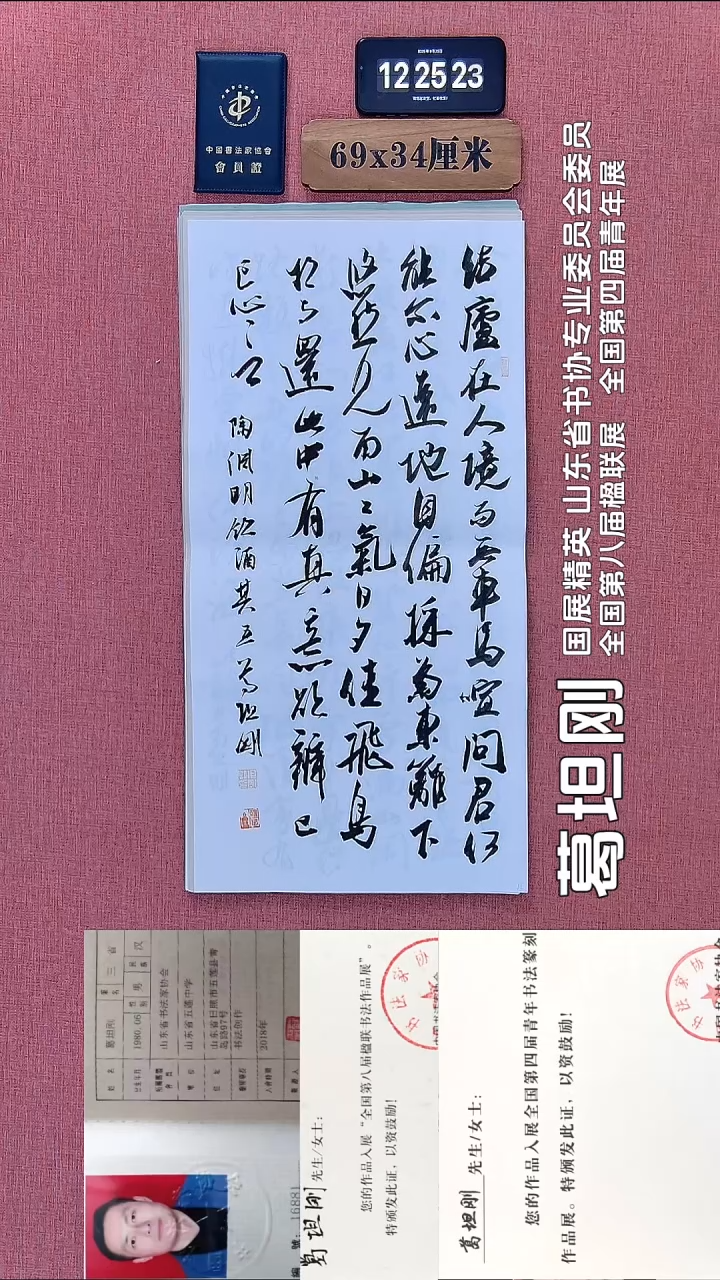 中國書法家協會
會員證
12 25 23
69x34厘米
結廬在人境而無車馬喧問君何
能尔心遠地自偏採菊東籬下
悠然見南山〻氣日夕佳飛鳥
相与還此中有真意欲辨已
忘言
陶淵明飲酒其五葛坦刚
国展精英 山东省书协专业委员会委员
全国第八届楹联展 全国第四届青年展
葛坦刚
姓名 葛坦刚
性别 男 民族 汉
1980.06
山东省书法家协会
山东省五莲中学
山东省日照市五莲县青
岛路97号
书法创作
2018年
编号：16881
葛坦刚 先生/女士：
您的作品入展“全国第八届楹联书法作品展”。
特颁发此证，以资鼓励！
葛坦刚 先生/女士：
您的作品入展全国第四届青年书法篆刻
作品展。特颁发此证，以资鼓励！